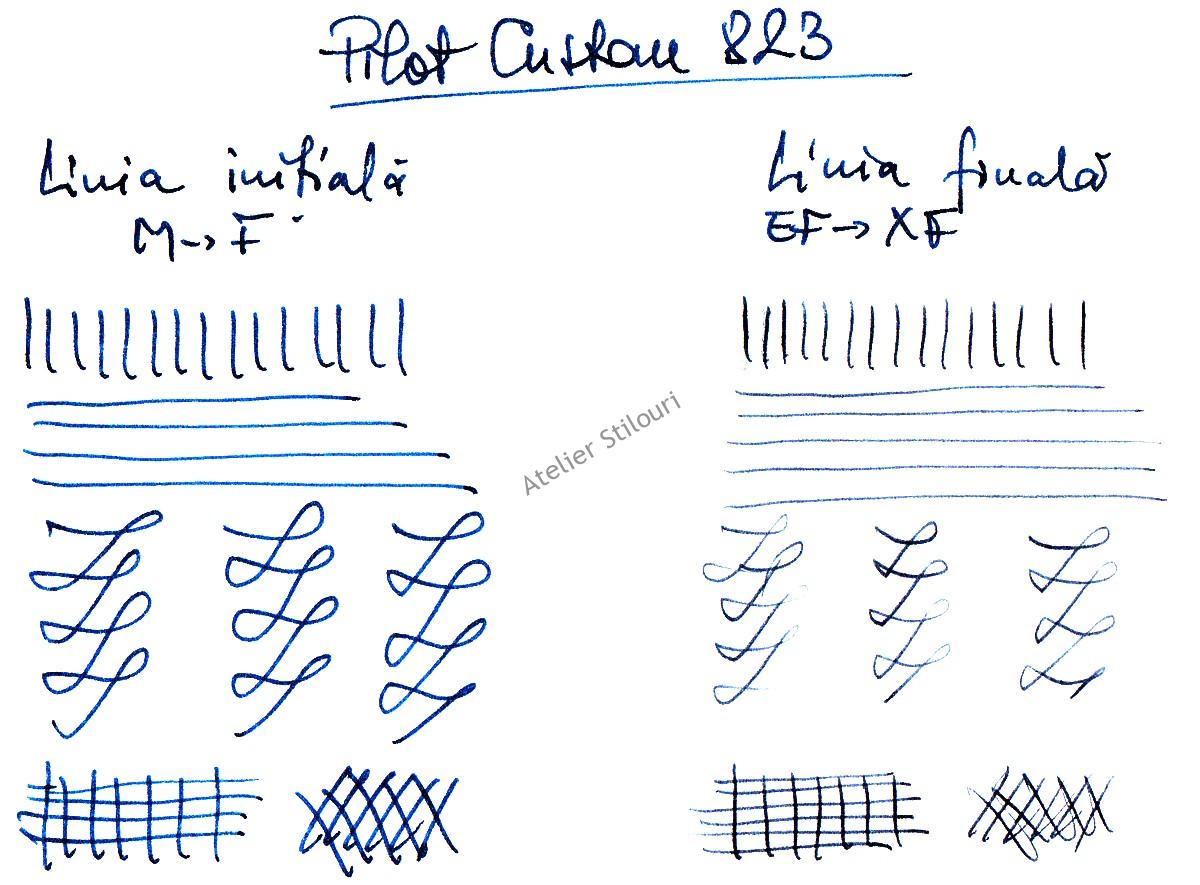 Pilot Custom 823
Linia inițială
M→F
Linia finală
EF→XF
Atelier Stilouri